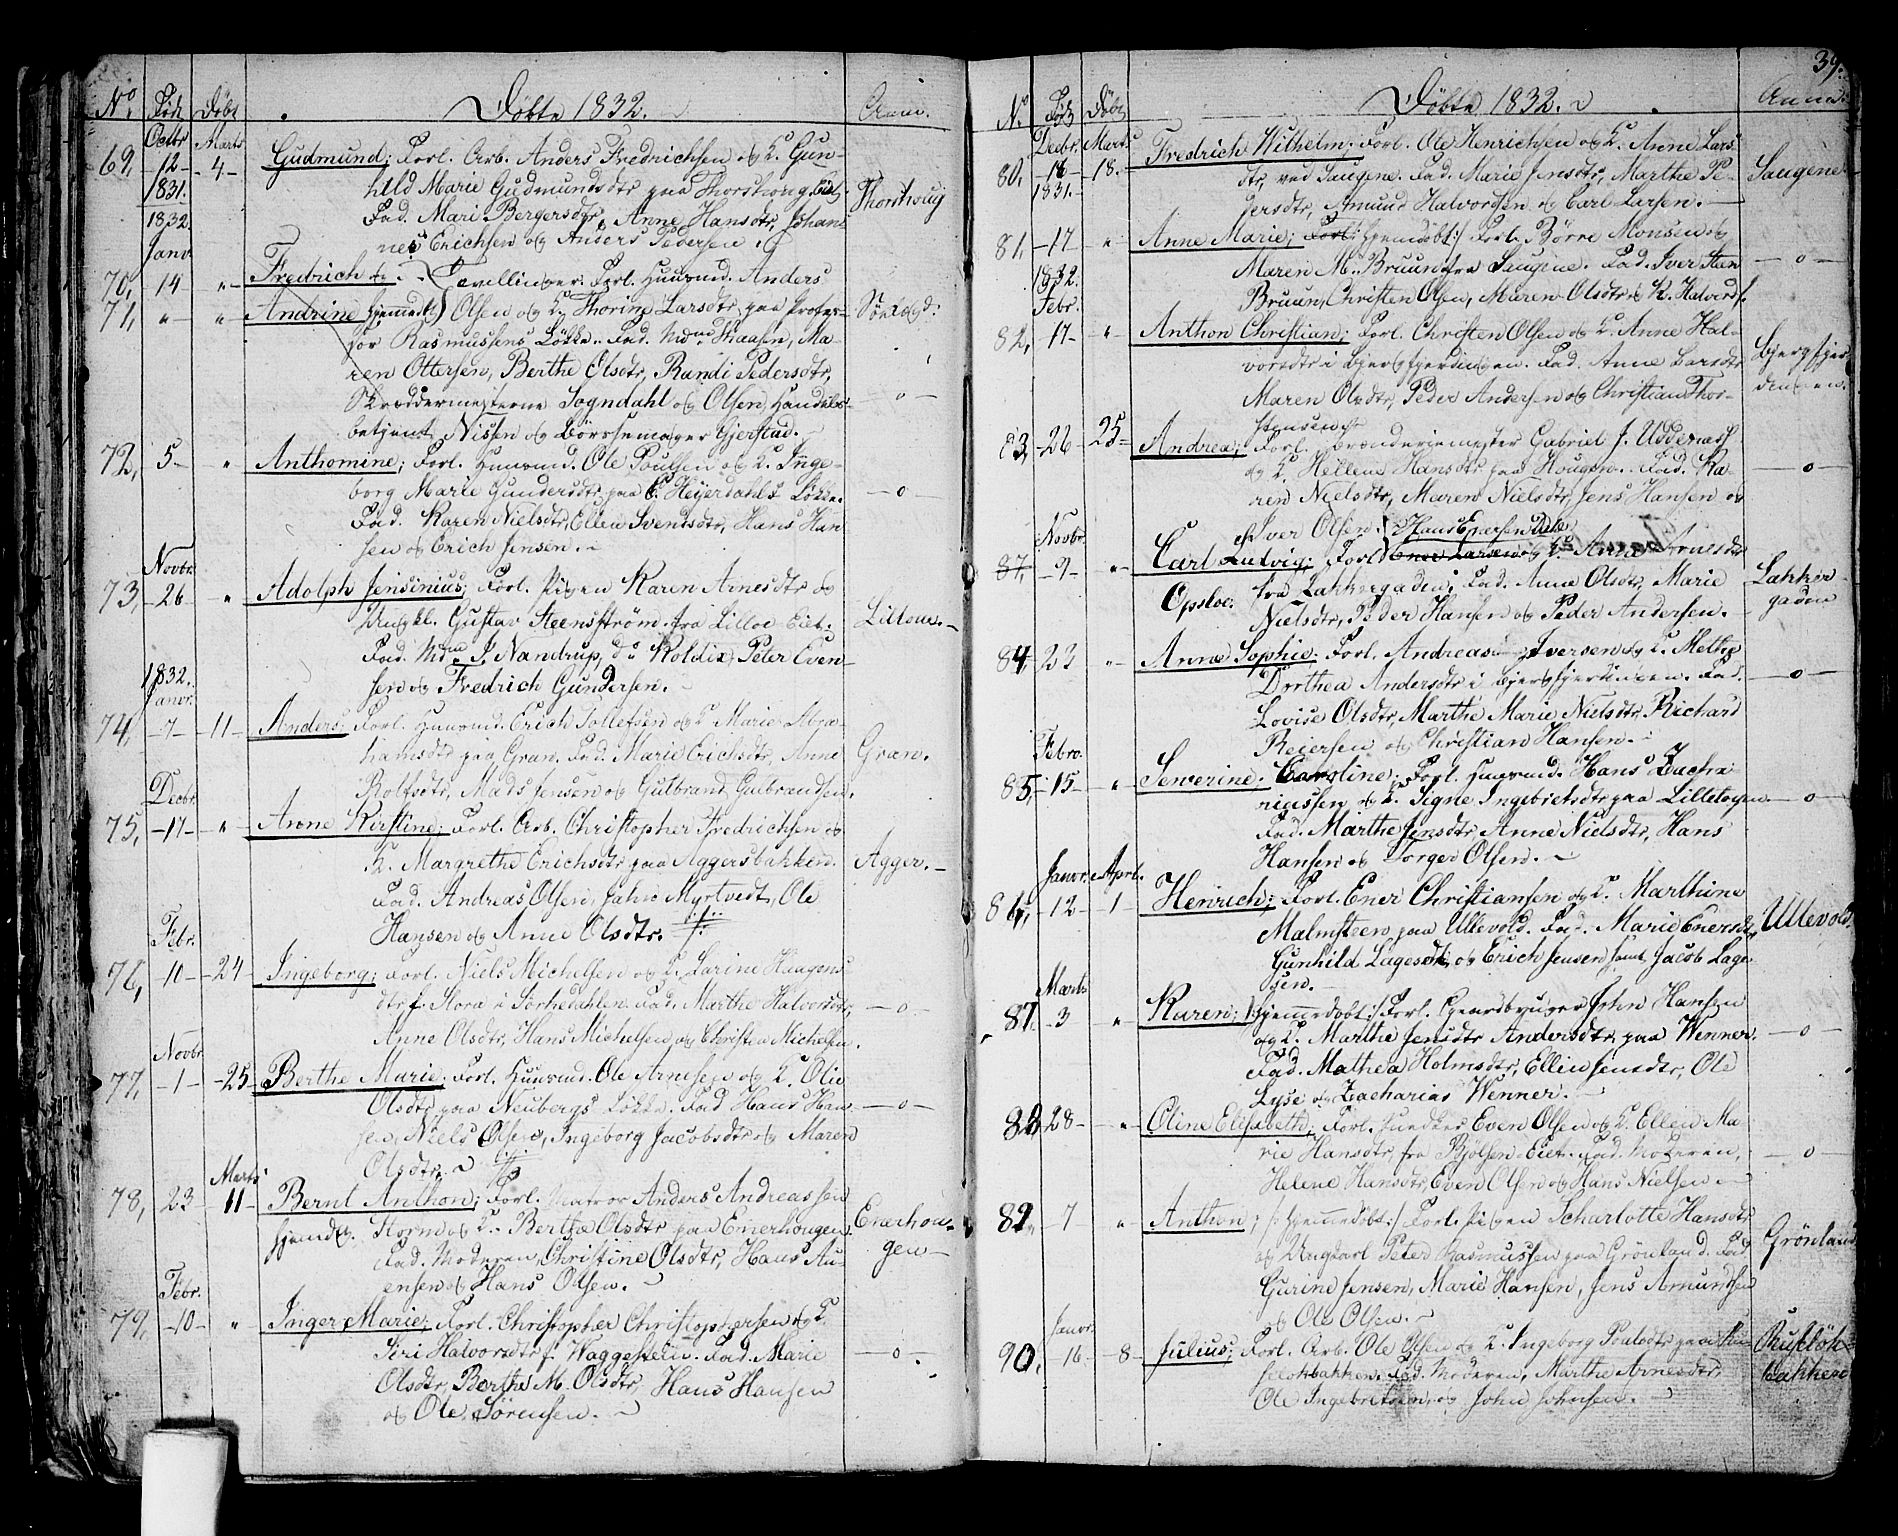 No. Föd. Döbt Döbte 1832. Anm.
Octbr Marts
69, 12 4 Gudmund; Forl. Arb. Anders Fredrichsen og K. Gun-
1831. hild Marie Gudmundsdtr paa Thorshoug Eiet. Thorshoug
1832. Fad. Mari Bergersdtr, Anne Hansdtr, Johan-
Janv. nes Erichsen og Anders Pedersen.
70, 14 " Fredrich og Tvellinger. Forl. Huusmd. Anders
71, " " Andrine hjemmedt. Olsen og K. Thorine Larsdtr paa Profes-
sor Rasmussens Løkke. Fad. Md. Haasen, Ma-
ren Ottersen, Berthe Olsdtr, Randi Pedersdtr,
Skreddermesterne Sogndahl og Olsen, Handels- —o—
betjent Nissen og Börssemager Gjerstad.
72, 5 " Anthomine; Forl. Huusmd. Ole Poulsen og K. Inge-
borg Marie Gundersdtr paa C. Heyerdahls Løkke. —o—
Fad. Karen Nielsdtr, Ellen Svendsdtr, Hans Han-
sen og Erich Jensen.
Novbr.
73, 26 " Adolph Jensinius; Forl. Pigen Karen Arnesdtr og
Ungkl. Gustav Steenstrøm fra Lilloe Eiet. Lilloe.
Fad. Md. J. Nandrup, do Koldix, Peter Even-
1832. sen og Fredrich Gundersen.
Janvr.
74, 7 11 Anders; Forl. Huusmd. Erich Tollefsen og K. Marie Abra-
hamsdtr paa Gran. Fad. Marie Erichsdtr, Anne Gran.
Decbr. Rolfsdtr, Mads Jensen og Gulbrand Gulbrandsen.
75, 17 " Anne Kirstine; Forl. Arb. Christopher Fredrichsen og
K. Margrethe Erichsdtr paa Aggersbakken. Agger.
Fad. Andreas Olsen, Jahn Myrtvedt, Ole
Febr. Hansen og Anne Olsdtr.
76, 10 24 Ingeborg; Forl. Niels Michelsen og K. Karine Haagens-
dtr f. Stora i Sørkedahlen. Fad. Marthe Halvorsdtr, —o—
Anne Olsdtr, Hans Michelsen og Christen Michelsen.
Novbr.
77, 1 25 Berthe Marie; Forl. Huusmd. Ole Arnesen og K. Olia
Olsdtr paa Neubergs Løkke. Fad. Hans Han- —o—
sen, Niels Olsen, Ingeborg Jacobsdtr og Maren
Marts Olsdtr.
78, 23 11 Bernt Anthon; Forl. Matros Anders Andreassen
hjemdt. Storm og K. Berthe Olsdtr paa Enerhougen. Enerhou-
Fad. Moderen, Christine Olsdtr, Hans Au- gen
Febr. ensen og Hans Olsen.
79, 10 " Inger Marie; Forl. Christopher Christophersen og K.
Siri Halvorsdtr f. Waggestein. Fad. Marie —o—
Olsdtr, Berthe M. Olsdtr, Hans Hansen
og Ole Sörensen.
39.
No. Föd Döbt Döbte 1832. Anm.
Decbr. Marts
80, 16 18. Fredrich Wilhelm; Forl. Ole Henrichsen og K. Anne Lars-
1831. dtr, ved Saugene. Fad. Marie Jensdtr, Marthe Pe- Saugene
dersdtr, Amund Halvordsen og Carl Larsen.
81, 17 " Anne Marie; Forl: hjemdöbt:/ Forl. Börre Monsen og
1832. Maren M. Bruun fra Saugene. Fad. Iver Han —o—
Febr. Bruun, Christen Olsen, Maren Olsdtr og K. Halvords.
82, 17 " Anthon Christian; Forl. Christen Olsen og K. Anne Hal-
vorsdtr i Bjergfjerdingen. Fad. Anne Larsdtr Bjergfjer-
Maren Olsdtr, Peder Andersen og Christian Thor- dingen.
stensen.
83, 26 25 Andrea; Forl. Brænderiemester Gabriel J. Uddenass
og K. Hellene Hansdtr paa Hougen. Fad. Ka- —o—
ren Nielsdtr, Maren Nielsdtr, Jens Hansen og
Novbr. Iver Olsen. Hans Epersen Dele
87, 9 " Carl Ludvig; Forl. Ener Larsen og K. Anne Arnesdtr
Opsloe: fra Lakkegaden; Fad. Anne Olsdtr, Marie Lakke-
Nielsdtr, Peder Hansen og Peder Andersen. gaden
84, 23 " Anne Sophie; Forl. Andreas Iversen og K. Methe
Dorthea Andersdtr i Bjergfjerdingen. Fad. —o—
Lovise Olsdtr, Marthe Marie Nielsdtr, Richard
Febro. Reiersen og Christian Hansen.
85, 15 " Severine Caroline; Forl. Huusmd. Hans Zacha-
riassen og K. Signe Ingebretsdtr paa Lilletøyen. —o—
Fad. Marthe Jensdtr, Anne Nielsdtr, Hans
Janvr. Aprl. Hansen og Torger Olsen.
86, 12 1 Henrich; Forl. Ener Christiansen og K. Marthine
Malmsteen paa Ullevold. Fad. Marie Enersdtr, Ullevold.
Gunhild Lagesdtr, og Erich Jensen samt Jacob Lage-
Marts sen.
87, 3 " Karen; /:hjemmedöbt:/ Forl. Gaardbruger John Hansen
og K. Marthe Jensdtr Andersdtr paa Wenner. —o—
Fad. Mathea Holmsdtr, Ellen Jensdtr, Ole
Lyse og Zacharias Wenner.
88 28 " Oline Elisabeth; Forl. Snedker Even Olsen og K. Ellen Ma-
rie Hansdtr, fra Bjölsen Eiet. Fad. Moderen, —o—
Helene Hansdtr, Even Olsen og Hans Nielsen.
89, 7 " Anthon; /:hjemmedöbt:/ Forl. Pigen Scharlotte Hansdtr
og Ungkarl Peter Rasmussen paa Grönland. Fad. Grönland
Gurine Jensen, Marie Hansen, Jens Amundsen
Janvr. og Ole Olsen.
90, 16 8 Julius; Forl. Arb. Ole Olsen og K. Ingeborg Poulsdtr paa Ru- Ruselök-
selökbakken. Fad. Moderen, Marthe Arnesdtr, bakken
Ole Ingebretsen, og John Johnsen.